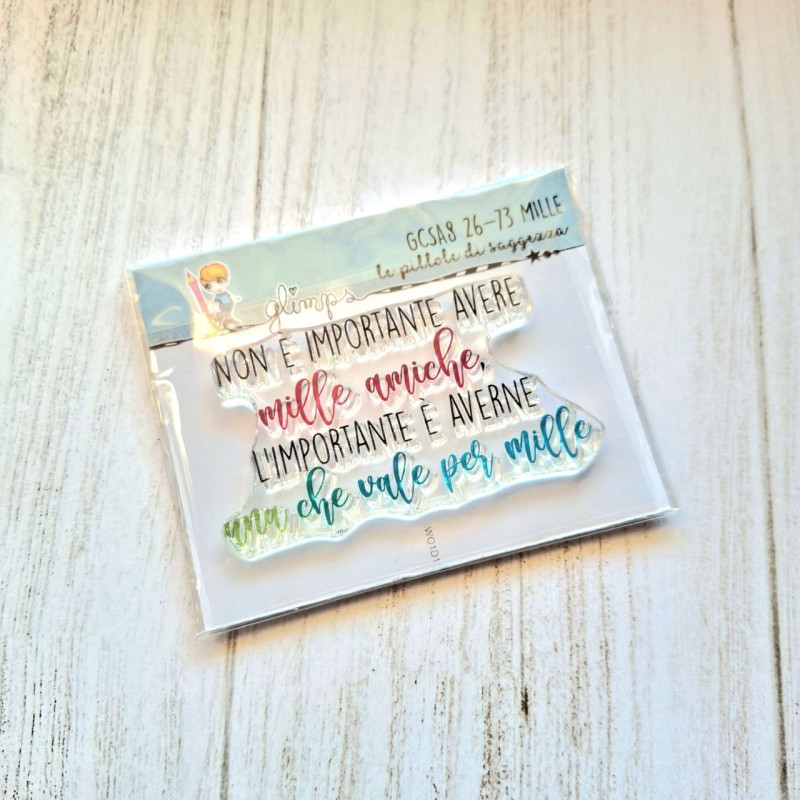 GCSA8 26-73 MILLE
le pillole di saggezza
glimps
NON È IMPORTANTE AVERE
mille amiche,
L'IMPORTANTE È AVERNE
una che vale per mille
W0101